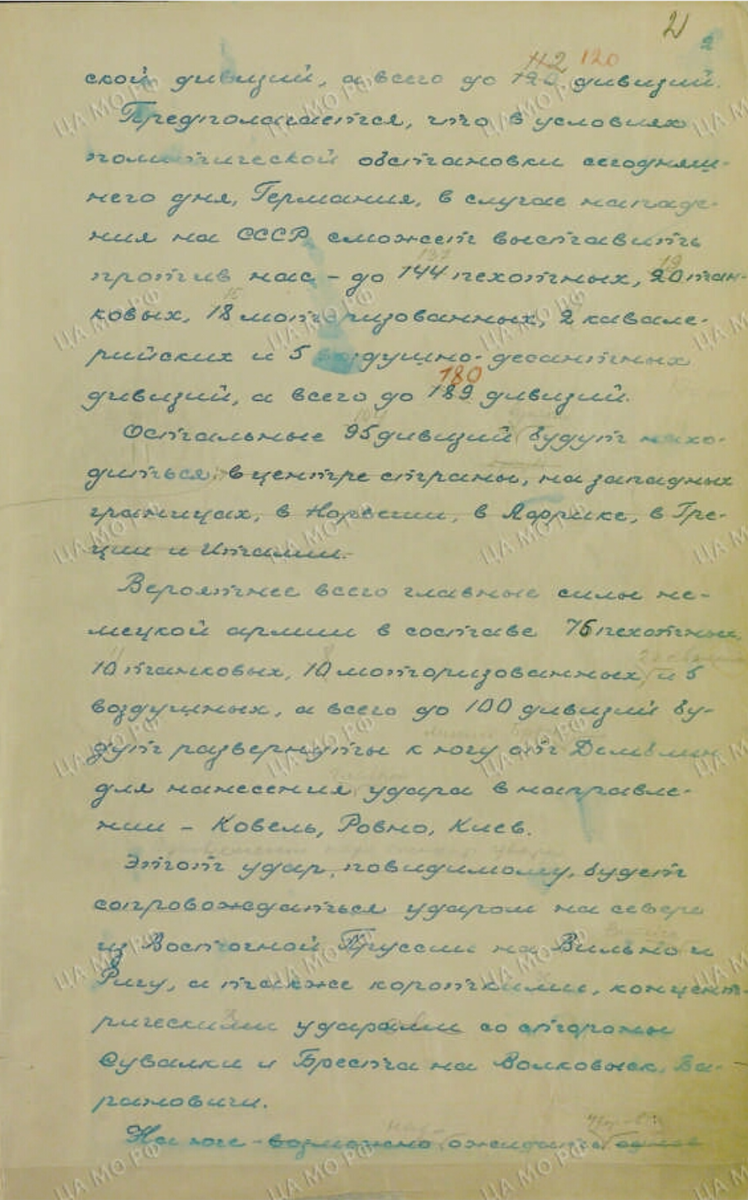 2
ской дивизий, а всего до 120 дивизий.
112 120
Предполагается, что в условиях
политической обстановки сегодняш-
него дня, Германия, в случае нападе-
ния на СССР, сможет выставить
против нас – до 144 пехотных, 20 тан-
137
19
ковых, 18 моторизованных, 2 кавале-
15
рийских и 5 воздушно-десантных
дивизий, а всего до 189 дивизий.
180
Остальные 95 дивизий будут нахо-
диться в центре страны, на западных
границах, в Норвегии, в Африке, в Гре-
ции и Италии.
Вероятнее всего главные силы не-
мецкой армии в составе 76 пехотных,
10 танковых, 10 моторизованных, и 5
воздушных, а всего до 100 дивизий бу-
дут развернуты к югу от Демблин
для нанесения удара в направле-
нии – Ковель, Ровно, Киев.
Этот удар, повидимому, будет
сопровождаться ударом на севере
из Восточной Пруссии на Вильно и
Ригу, а также короткими, концент-
рическими ударами со стороны
Сувалки и Бреста на Волковыск, Ба-
рановичи.
На юге – возможно ожидать
ЦА МО РФ